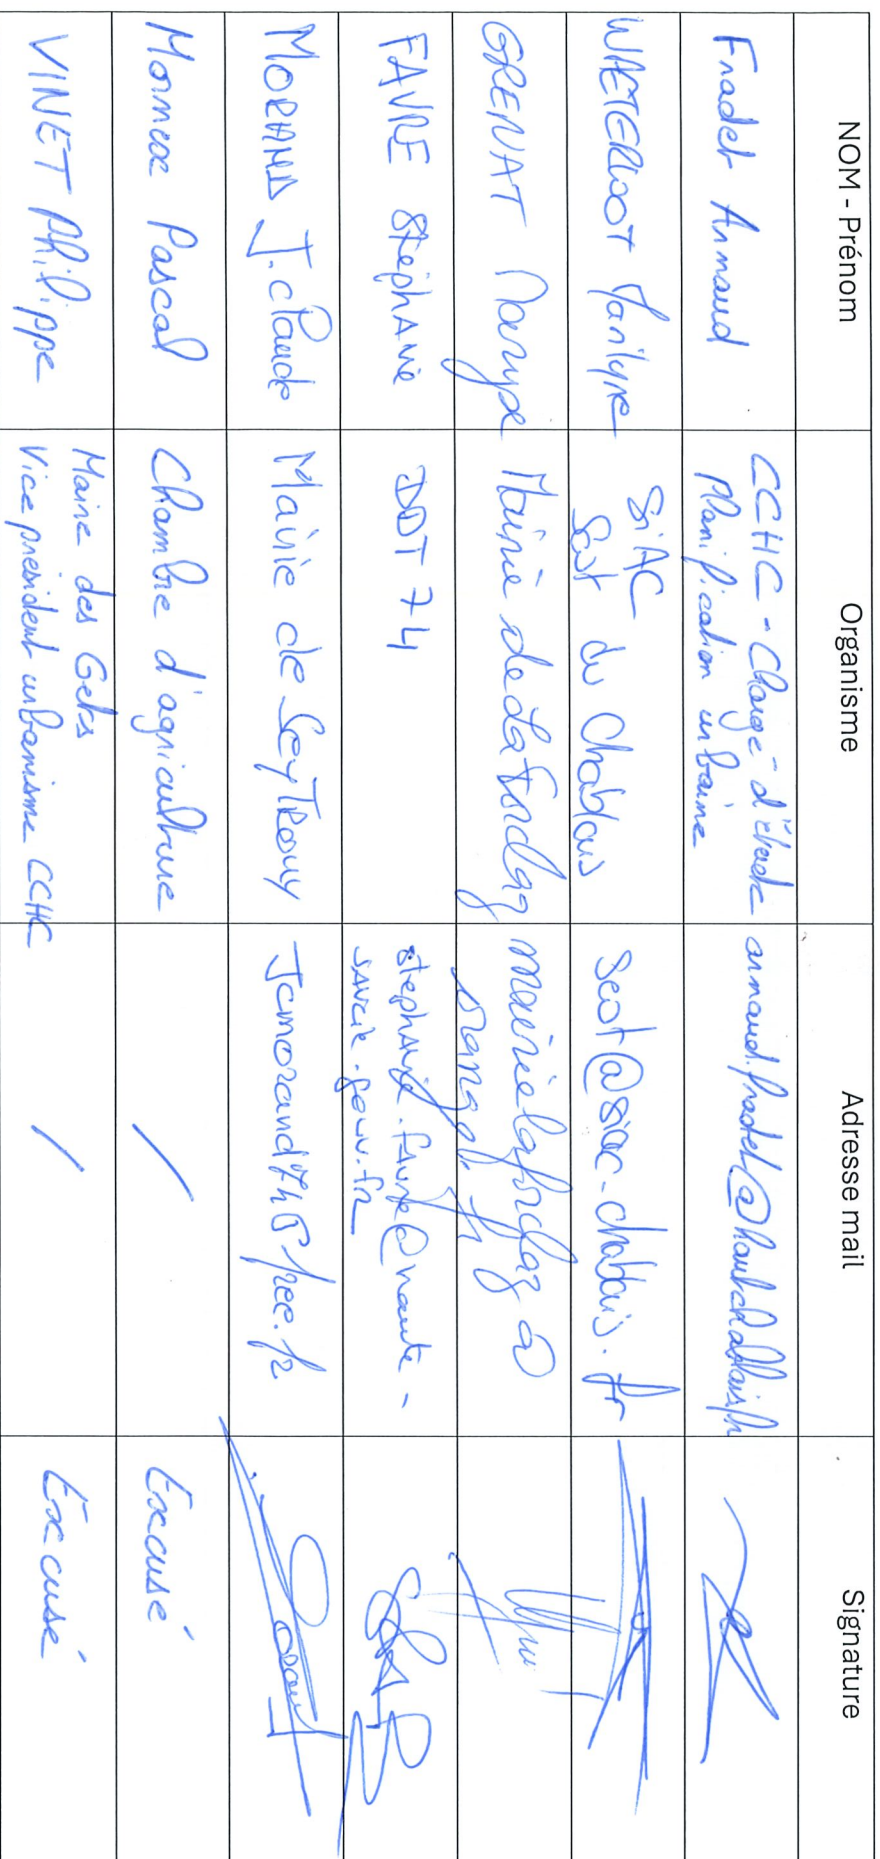 NOM - Prénom
Organisme
Adresse mail
Signature
Fradet Arnaud
CCHC - Chargé d'étude
planification urbaine
arnaud.fradet@hautchablais.fr
WAETERLOOT Marilyne
SIAC
Scot du Chablais
scot@siac-chablais.fr
GRENAT Maryse
Mairie de La Forclaz
mairielaforclaz@
orange.fr
FAVRE Stéphanie
DDT 74
stephanie.favre@haute-
savoie.gouv.fr
MORAND J.claude
Mairie de SeyTroux
Jcmorand74@free.fr
Pascal
Chambre d'agriculture
/
Excusé
VINET Philippe
Maire des Gets
Vice président urbanisme CCHC
/
Excusé